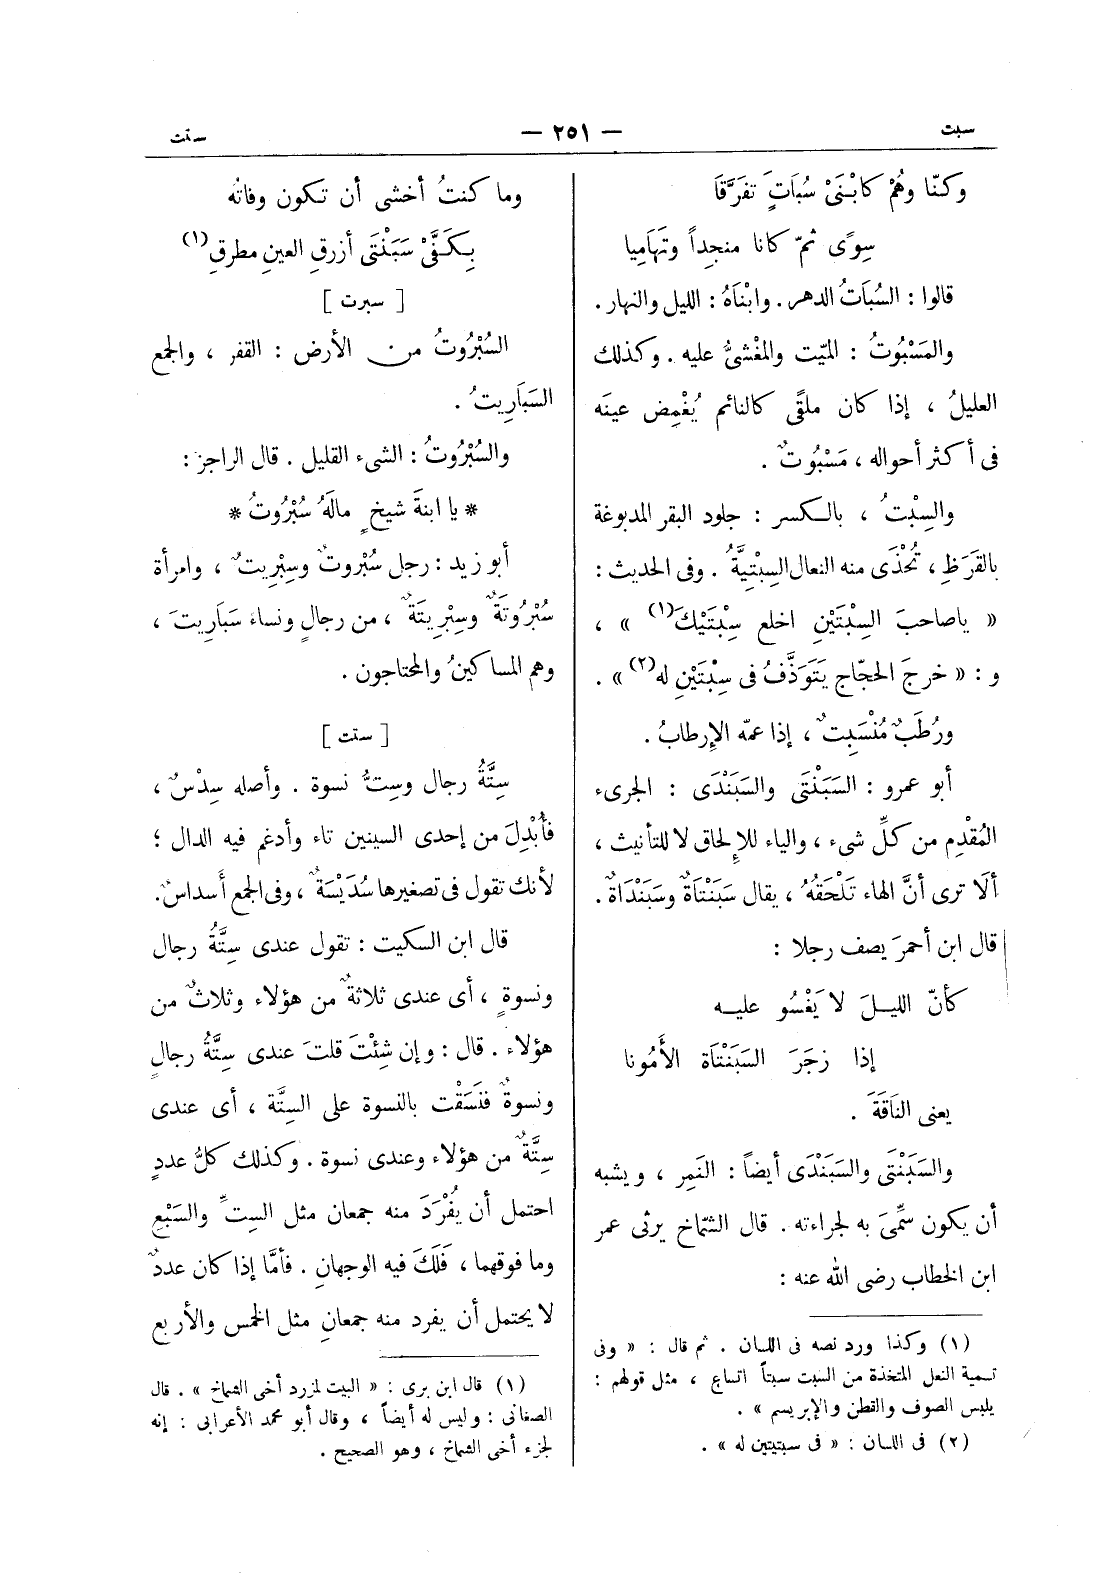 سبت
— ٢٥١ —
ستت
وكنّا وهُمْ كابْنَىْ سُبَاتٍ تفرَّقَا
سِوًى ثمّ كانا منجِداً وتِهَامِيا
قالوا : السُبَاتُ الدهر . وابْنَاهُ : الليل والنهار .
والمَسْبُوتُ : الميّت والمَغْشىُّ عليه . وكذلك
العليلُ ، إذا كان ملقًى كالنائم يُغْمِض عينَه
فى أكثر أحواله ، مَسْبُوتٌ .
والسِبْتُ ، بالكسر : جلود البقر المدبوغة
بالقَرَظِ ، تُحْذَى منه النعال السِبْتِيَّةُ . وفى الحديث :
« ياصاحبَ السِبْتَيْنِ اخلع سِبْتَيْكَ (١) » ،
و : « خرجَ الحجّاج يَتَوَذَّفُ فى سِبْتَيْنِ له (٢) » .
ورُطَبٌ مُنْسَبِتٌ ، إذا عمّه الإرطابُ .
أبو عمرو : السَبَنْتَى والسَبَنْدَى : الجرىء
المُقْدِم من كلِّ شىء ، والياء للإلحاق لا للتأنيث ،
ألَا ترى أنَّ الهاء تَلْحَقُهُ ، يقال سَبَنْتَاةٌ وسَبَنْدَاةٌ .
قال ابن أحمرَ يصف رجلا :
كأنّ الليلَ لا يَغْسُو عليه
إذا زجَرَ السَبَنْتَاةَ الأَمُونا
يعنى الناقَةَ .
والسَبَنْتَى والسَبَنْدَى أيضاً : النَمِر ، ويشبه
أن يكون سمِّىَ به لجراءته . قال الشمّاخ يرثى عمر
ابن الخطاب رضى الله عنه :
(١) وكذا ورد نصه فى اللسان . ثم قال : « وفى
تسمية النعل المتخذة من السبت سبتاً اتساع ، مثل قولهم :
يلبس الصوف والقطن والإبريسم » .
(٢) فى اللسان : « فى سبتيتين له » .
وما كنتُ أخشى أن تكون وفاتُه
بِكَفَّىْ سَبَنْتَى أزرقِ العينِ مطرقِ (١)
[ سبرت ]
السُبْرُوتُ من الأرض : القفر ، والجمع
السَبَارِيتُ .
والسُبْرُوتُ : الشىء القليل . قال الراجز :
* يا ابنةَ شيخٍ مالَهُ سُبْرُوتُ *
أبو زيد : رجل سُبْروتٌ وسِبْرِيتٌ ، وامرأة
سُبْرُوتَةٌ وسِبْرِيتَةٌ ، من رجالٍ ونساء سَبَارِيتَ ،
وهم المساكينُ والمحتاجون .
[ ستت ]
سِتَّةُ رجال وسِتُّ نسوة . وأصله سِدْسٌ ،
فأُبْدِلَ من إحدى السينين تاء وأدغم فيه الدال ؛
لأنك تقول فى تصغيرها سُدَيْسَةٌ ، وفى الجمع أسداسٌ .
قال ابن السكيت : تقول عندى سِتَّةُ رجال
ونسوةٍ ، أى عندى ثلاثةٌ من هؤلاء وثلاثٌ من
هؤلاء . قال : وإن شِئْتَ قلتَ عندى سِتَّةُ رجالٍ
ونسوةٌ فنَسَقْت بالنسوة على السِتَّة ، أى عندى
سِتَّةٌ من هؤلاء وعندى نسوة . وكذلك كلُّ عددٍ
احتمل أن يُفْرَدَ منه جمعان مثل الستِّ والسَبْعِ
وما فوقهما ، فَلَكَ فيه الوجهانِ . فأمَّا إذا كان عددٌ
لا يحتمل أن يفرد منه جمعانِ مثل الخمس والأربع
(١) قال ابن برى : « البيت لمزرد أخى الشماخ » . قال
الصغانى : وليس له أيضاً ، وقال أبو محمد الأعرابى : إنه
لجزء أخى الشماخ ، وهو الصحيح .